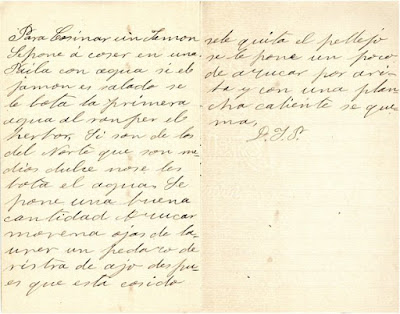 Para Cosinar un Jamon
Se pone á coser en una
Paila con agua si el
Jamon es salado se
le bota la primera
agua al romper el
herbor. Si son de los
del Norte que son me-
dios dulce no se les
bota el agua. Se
pone una buena
cantidad Azucar
morena ojas de lau-
uner un pedazo de
ristra de ajo despu-
es que está cosido
se le quita el pellejo
se le pone un poco
de azucar por arri-
ta y con una plan-
cha caliente se que-
ma.